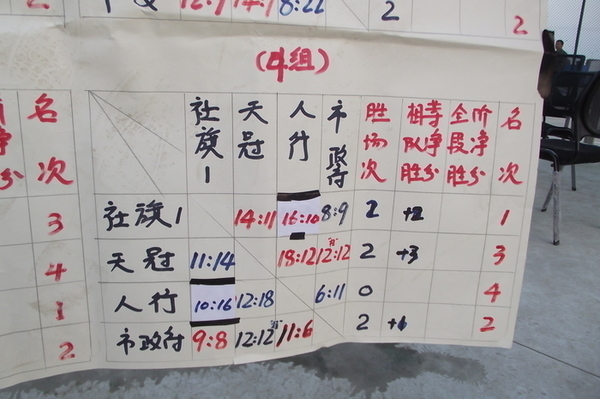 2
2
(4组)
名次
社旗1 天冠 人行 市政府 胜场次 相等队净胜分 全阶段净胜分 名次
3 社旗1 14:11 16:10 8:9 2 +2 1
4 天冠 11:14 18:12 12:12 2 +3 3
1 人行 10:16 12:18 6:11 0 4
2 市政府 9:8 12:12 11:6 2 2